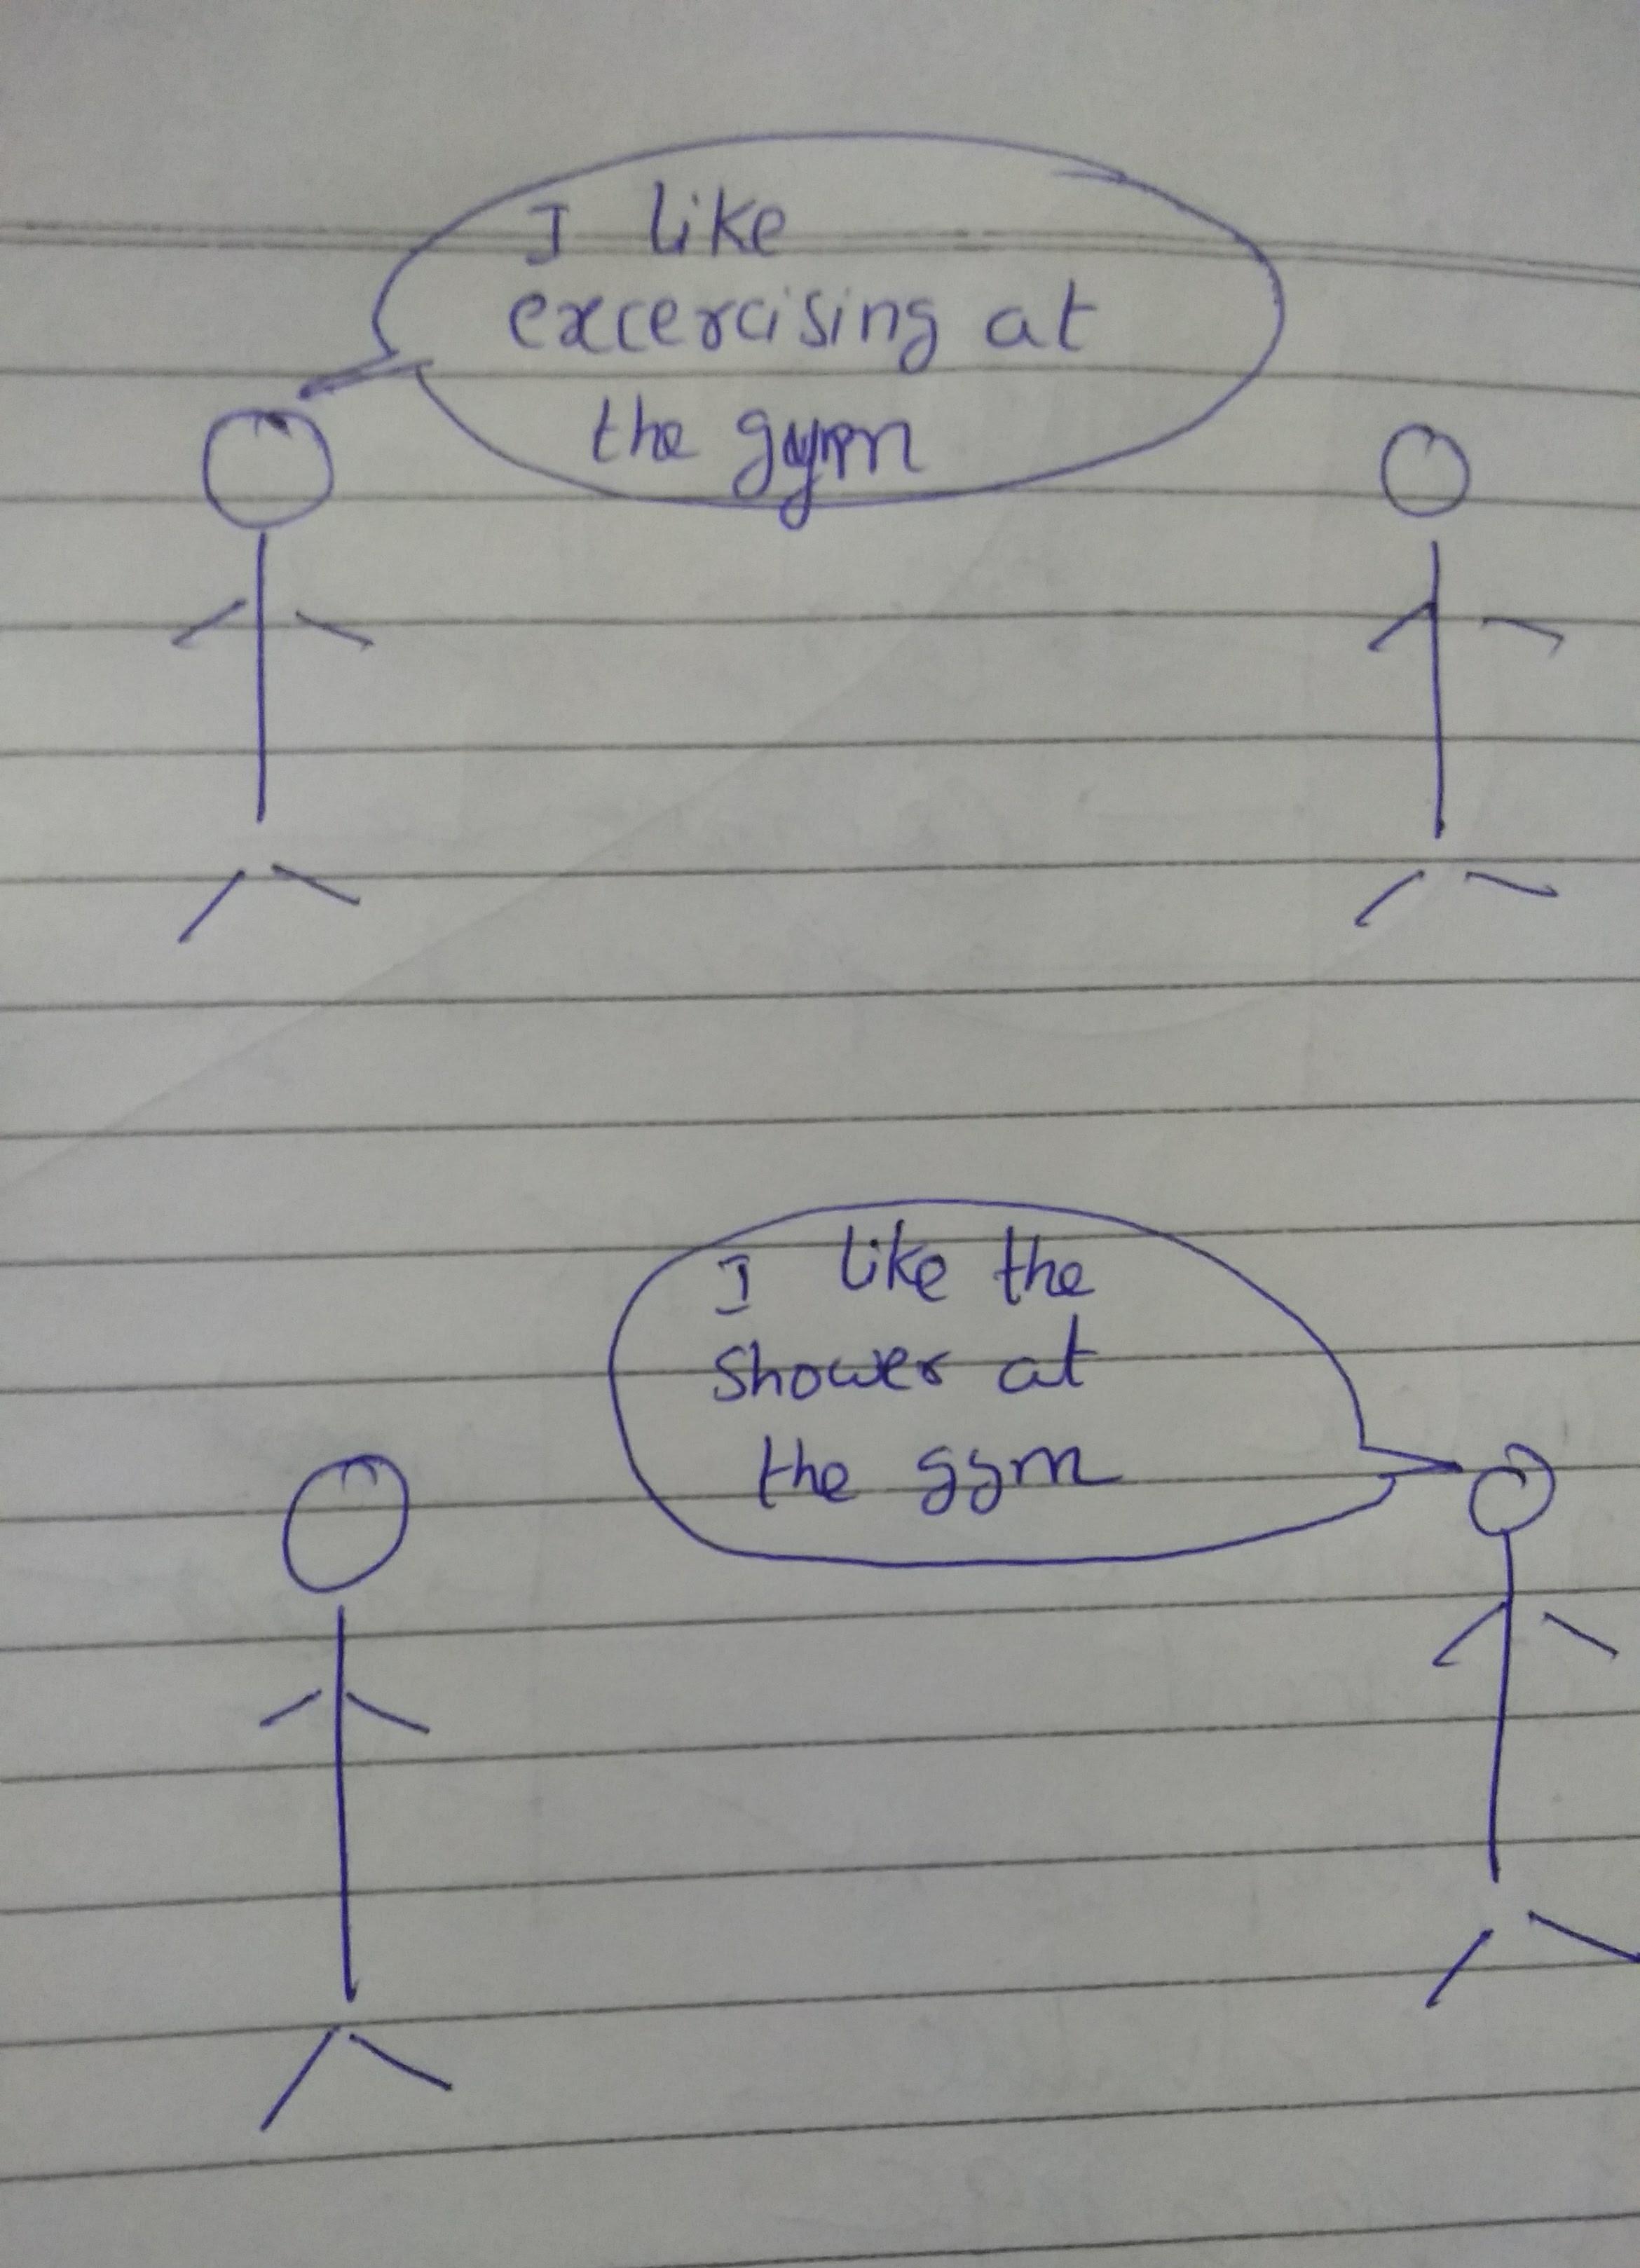 I like
excercising at
the gym
I like the
shower at
the gym